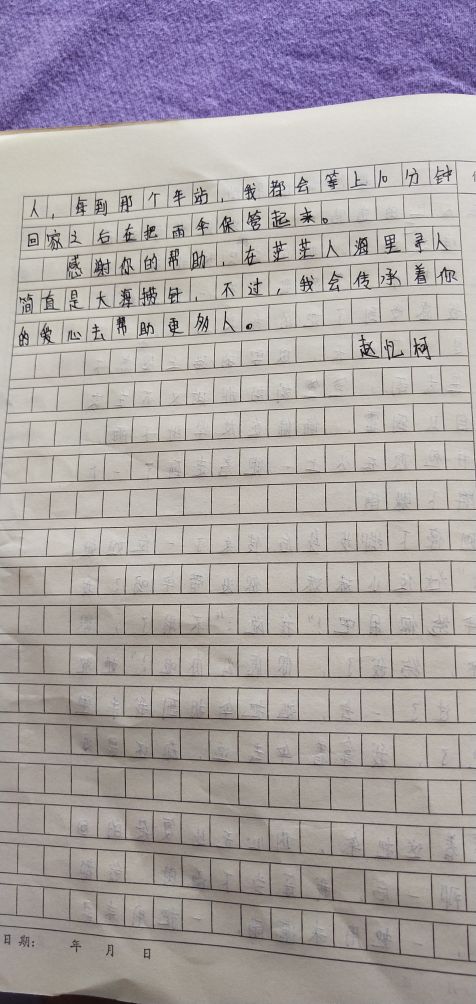 人，每到那个车站，我都会等上10分钟
回家之后在把雨伞保管起来。
感谢你的帮助，在茫茫人海里寻人
简直是大海捞针，不过，我会传承着你
的爱心去帮助更多人。
赵忆柯
日期： 年 月 日